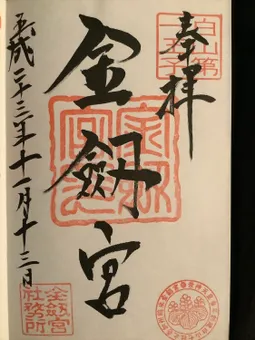 奉拝
金剱宮
平成二十三年十一月十三日
金剱宮
社務所